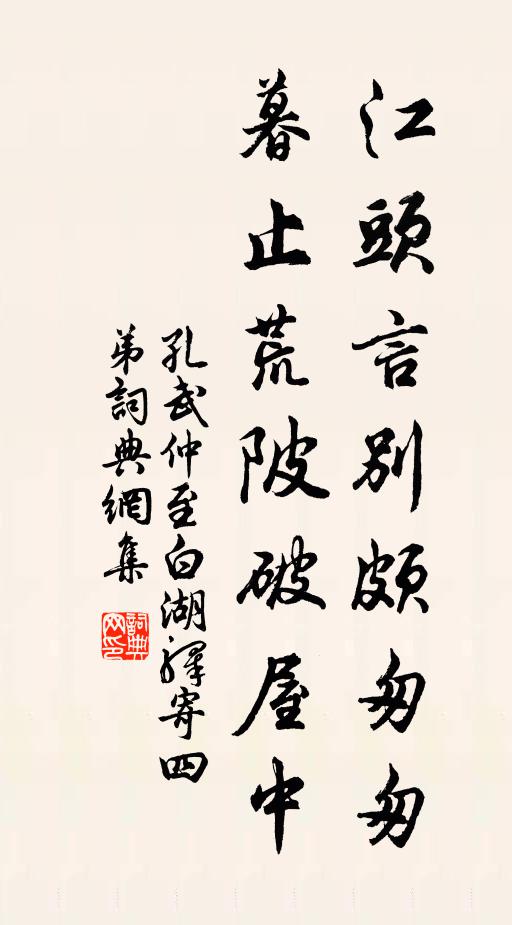 江頭言別頗匆匆
暮止荒陂破屋中
孔武仲至白湖驛寄四
弟詞典網集
詞典
网印